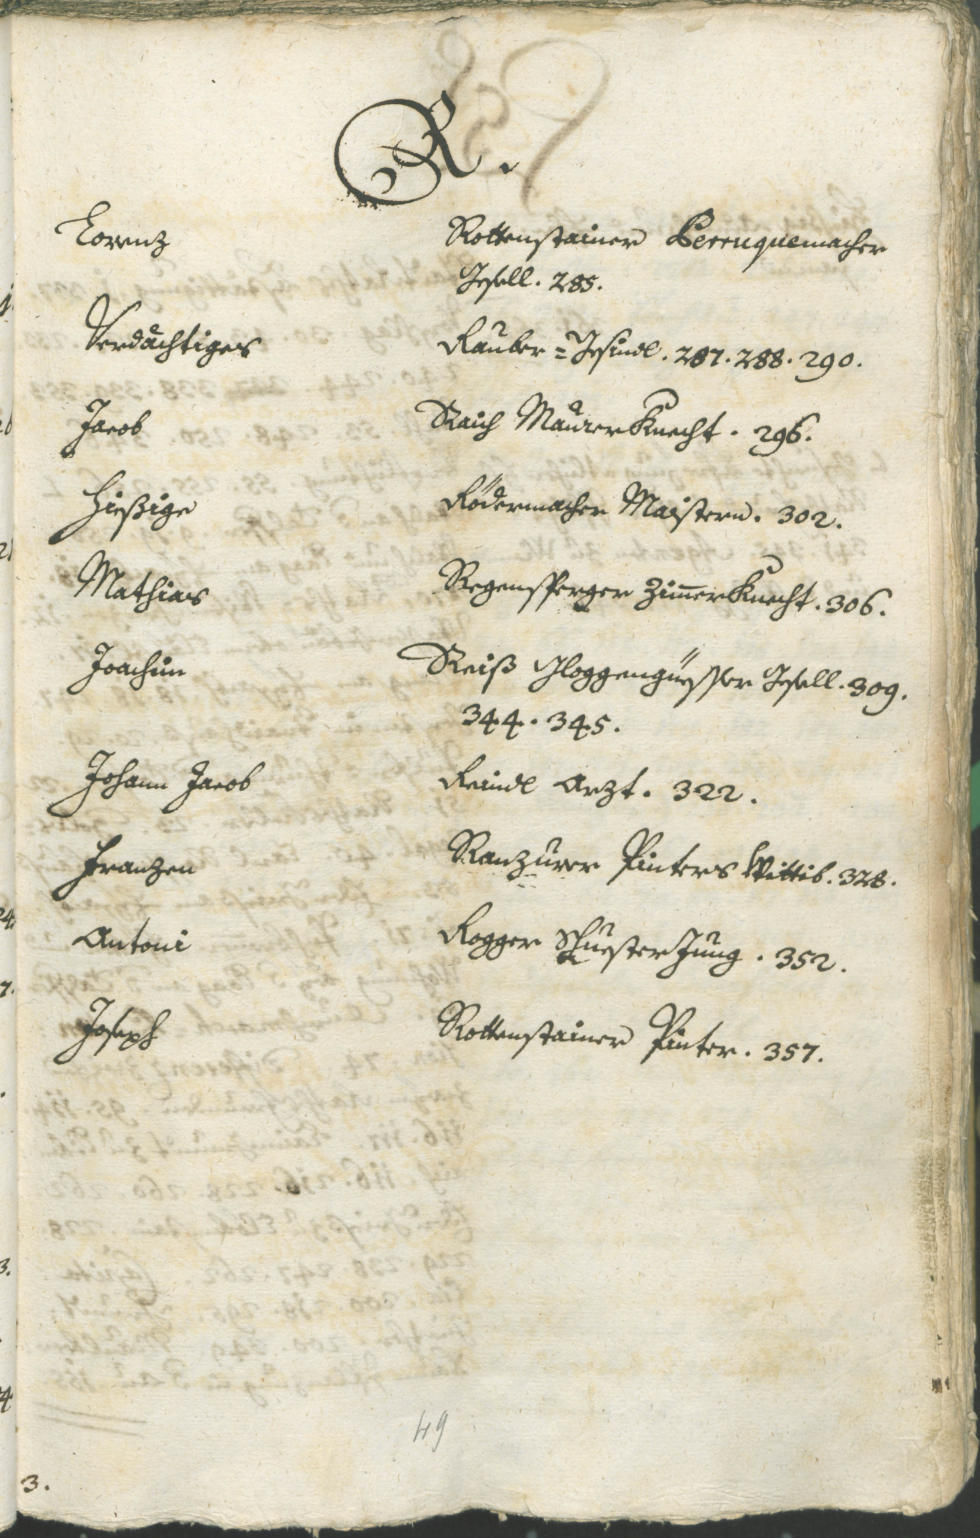 R.
Lorenz Rottenstainer Perruquemacher
Gesell. 285.
Verdächtiges Rauber=Gesindl. 287. 288. 290.
Jacob Raich Maurer Knecht. 296.
Hießige Rödermacher Maistern. 302.
Mathias Regensperger Zimer Knecht. 306.
Joachim Reiß Gloggengüesser Gesell. 309.
344. 345.
Johann Jacob Reindl Arzt. 322.
Frantzen Ranzurer Pinters Wittib. 328.
Antoni Rogger Schuester Jung. 352.
Joseph Rottenstainer Pinter. 357.
49
3.